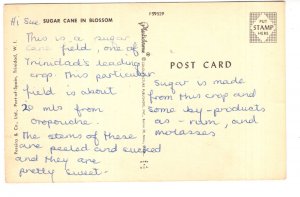 SUGAR CANE IN BLOSSOM
P59529
Hi Sue
This is a sugar
cane field, one of
Trinidad's leading
crop. This particular
field is about
20 mls from
oropouche.
The stems of these
are peeled and sucked
and they are
pretty sweet.
POST CARD
PUT
STAMP
HERE
Sugar is made
from this crop and
some by-products
as - rum, and
molasses
Pereira & Co., Ltd., Port of Spain, Trinidad, W. I.
Plastichrome